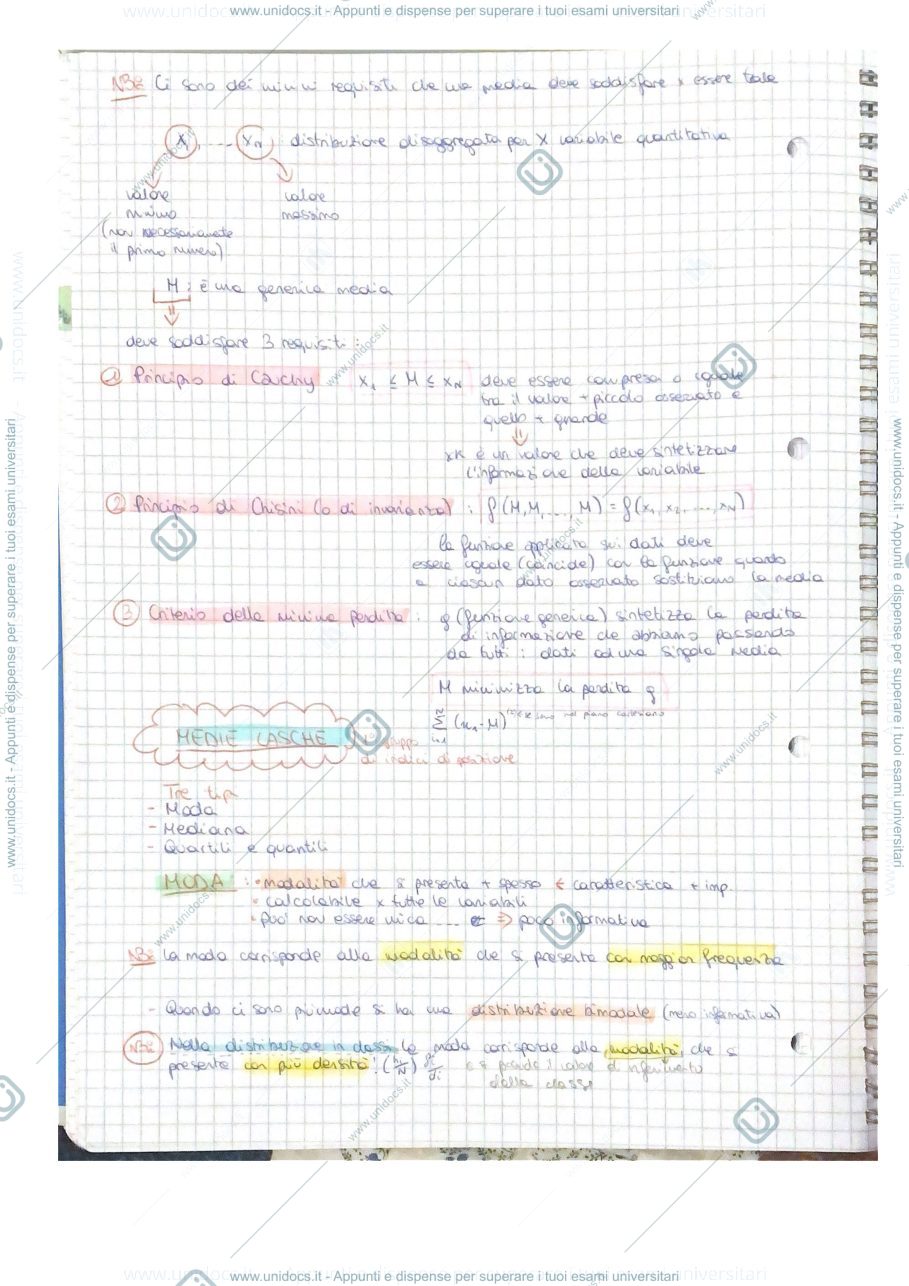 www.unidocs.it - Appunti e dispense per superare i tuoi esami universitari
NB: Ci sono dei minimi requisiti che una media deve soddisfare x essere tale
x1, ... xN : distribuzione disaggregata per X variabile quantitativa
valore minimo (non necessariamente il primo numero)
valore massimo
M : è una generica media
deve soddisfare 3 requisiti :
① Principio di Cauchy x1 ≤ M ≤ xN deve essere compresa o uguale
tra il valore + piccolo osservato e
quello + grande
xk è un valore che deve sintetizzare
l'informazione della variabile
② Principio di Chisini (o di invarianza) : f(M,M,...,M) = f(x1, x2, ..., xN)
la funzione applicata sui dati deve
essere uguale (coincide) con la funzione quando
a ciascun dato osservato sostituiamo la media
③ Criterio della minima perdita : g (funzione generica) sintetizza la perdita
di informazione che abbiamo passando
da tutti i dati ad una singola media
M minimizza la perdita g
MEDIE LASCHE
di indici di posizione
Tre tipi
- Moda
- Mediana
- Quartili e quantili
MODA : • modalità che si presenta + spesso ← caratteristica + imp.
• calcolabile x tutte le variabili
• Può non essere unica ... ⇒ poco informativa
NB: La moda corrisponde alla modalità che si presenta con maggior frequenza
- Quando ci sono più mode si ha una distribuzione bimodale (meno informativa)
NB: Nella distribuzione in classi la moda corrisponde alla modalità che si
presenta con più densità! e si prende il valore di riferimento
della classe
www.unidocs.it - Appunti e dispense per superare i tuoi esami universitari